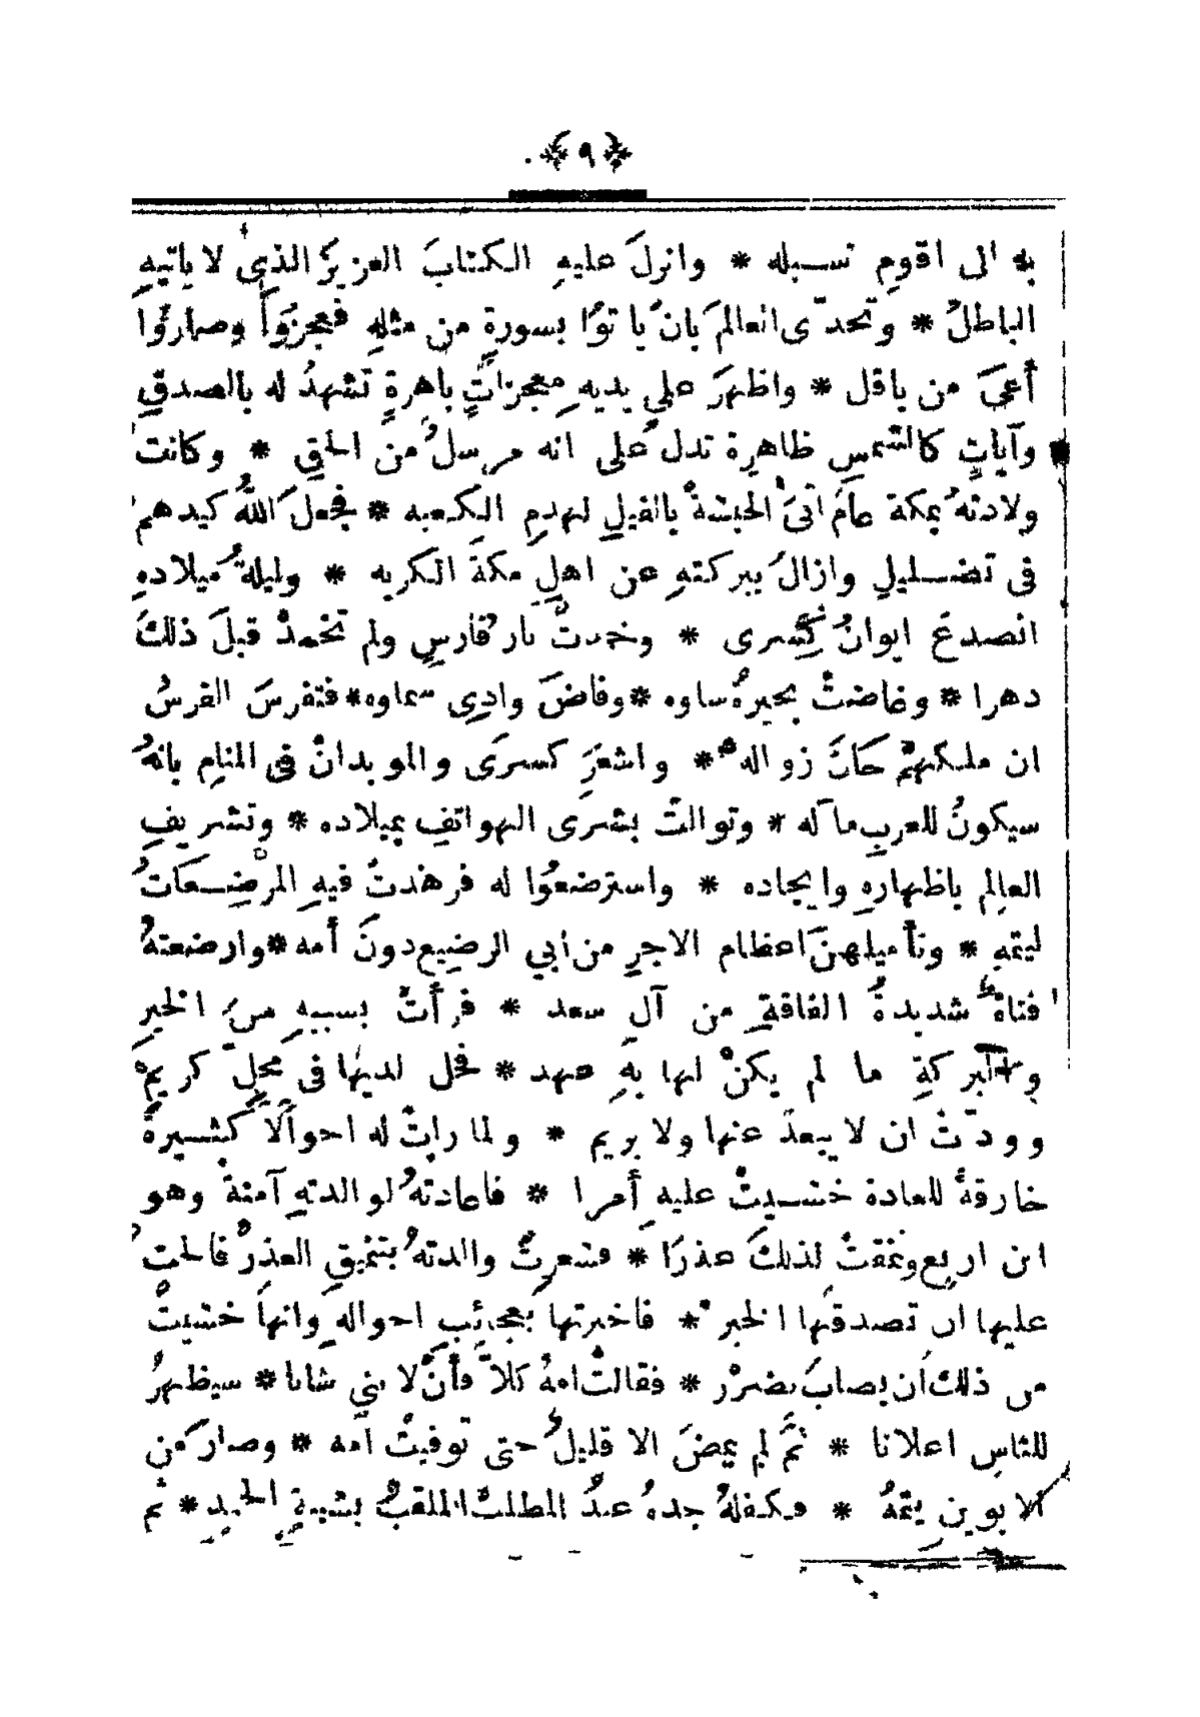 ﴿٩﴾
به الى اقوم تسبيله * وانزلَ عليهِ الكتابَ العزيزَ الذى لا ياتيهِ
الباطلُ * وتحدّى العالمَ بانْ ياتوُا بسورةٍ من مثلهِ فعجزوُا وصاروُا
أعىَ من باقل * واظهرَ على يديهِ معجزاتٍ باهرةٍ تشهدُ له بالصدقِ
وآياتٍ كالشمسِ ظاهرة تدلُ على انه مرسلُ منَ الحقِ * وكانت
ولادتهُ بمكة عامَ اتىَ الحبشةُ بالفيلِ لهدمِ الكعبه * فجعلَ اللهُ كيدهم
فى تضليلٍ وازالَ ببركتهِ عن اهلِ مكةَ الكربه * وليلةُ ميلادهِ
انصدعَ ايوانُ كِسرى * وخمدتْ نارُ فارسِ ولم تخمدْ قبلَ ذلكَ
دهرا * وغاضتْ بحيرةُ ساوه * وفاضَ وادِى سماوه * فتفرسَ الفرسُ
ان ملكهمْ حانَ زواله * واشعَرِ كسرَى والموبدانْ فى المنامِ بانهُ
سيكونُ للعربِ مآله * وتوالتْ بشرى الهواتفِ بميلاده * وتشريفِ
العالمِ باظهارهِ وايجاده * واسترضعُوا له فزهدتْ فيهِ المرْضِعَاتُ
ليتمهِ * وتأميلهنَ اعظام الاجرِ من أبي الرضيع دونَ أمه * وارضعتهُ
فتاةٌ شديدةُ الفاقةِ من آلِ سعد * فرأتْ بسببهِ من الخيرِ
والبركةِ ما لم يكنْ لها بهِ عهد * فحل لديها فى محلٍّ كريمْ
وودّتْ ان لا يبعدَ عنها ولا يريم * ولما راتْ له احوالًا كثيرةً
خارقةً للعادة خشيتْ عليهِ أمرا * فاعادتهُ لوالدتهِ آمنةَ وهو
ابن اربع ونمقتْ لذلكَ عذرًا * فشعرتْ والدتهُ بتنميقِ العذرْ فالحتْ
عليها ان تصدقَها الخبرْ * فاخبرتها بعجائبِ احوالهِ وانها خشيتْ
من ذلك ان يصابَ بضررْ * فقالتْ امهُ كلاّ فأنَّ لابني شانا * سيظهرُ
للناسِ اعلانا * ثمَّ لم يمضَ الا قليلُ حتى توفيتْ امه * وصار من
الابوينِ يتمهُ * وكفلهُ جدهُ عبدُ المطلبْ الملقبُ بشيبةِ الحمدِ * ثم